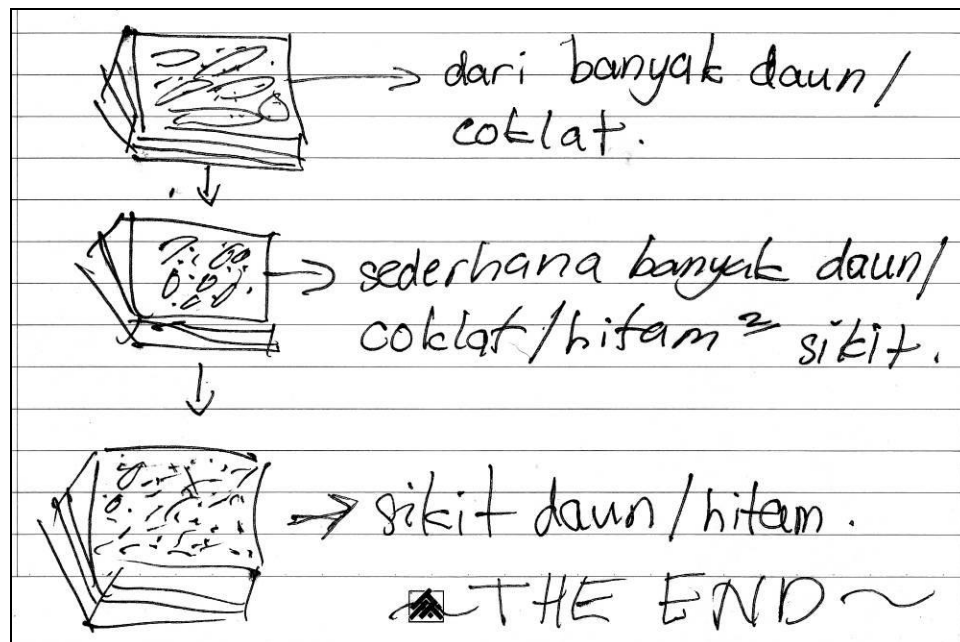 dari banyak daun/
coklat.
sederhana banyak daun/
coklat/hitam² sikit.
sikit daun/hitam.
~THE END~